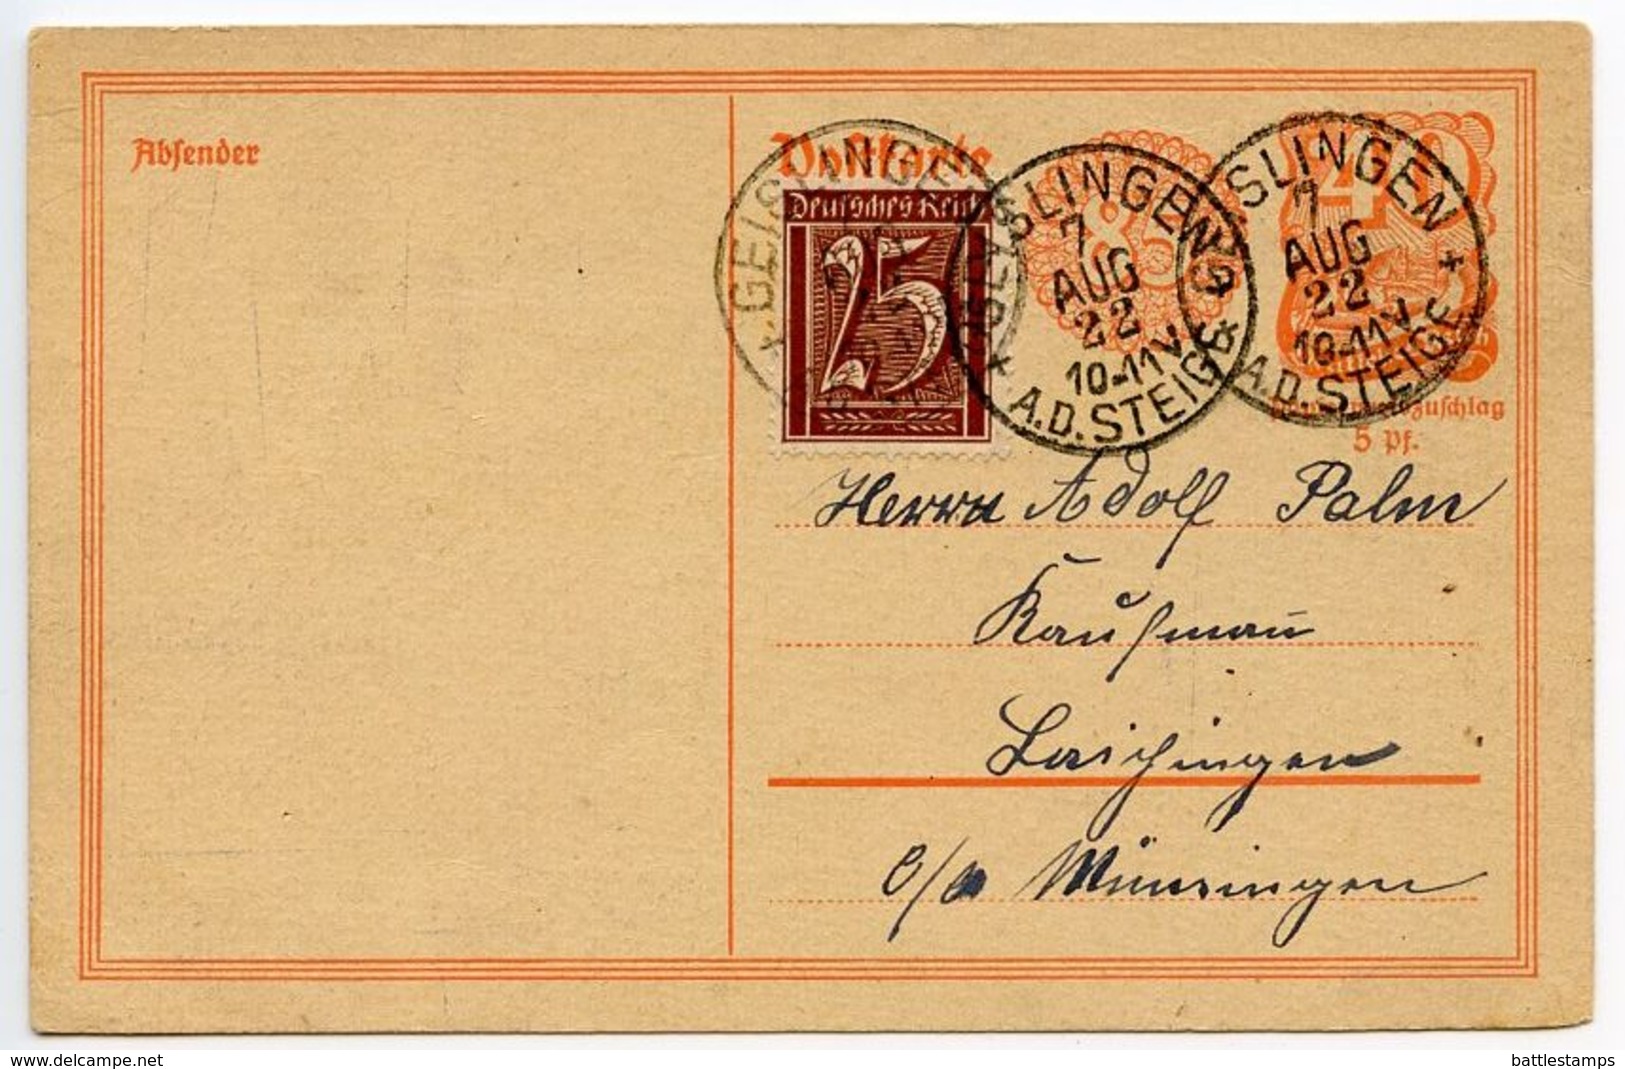 Absender
Postkarte
Deutsches Reich
25
85
40
GEISLINGEN
GEISLINGEN
7
AUG
22
10-11V
A.D. STEIGE
GEISLINGEN
7
AUG
22
10-11V
A.D. STEIGE
5 Pf.
Herrn Adolf Palm
Kaufmann
Laichingen
O/A Münsingen
www.delcampe.net
battlestamps